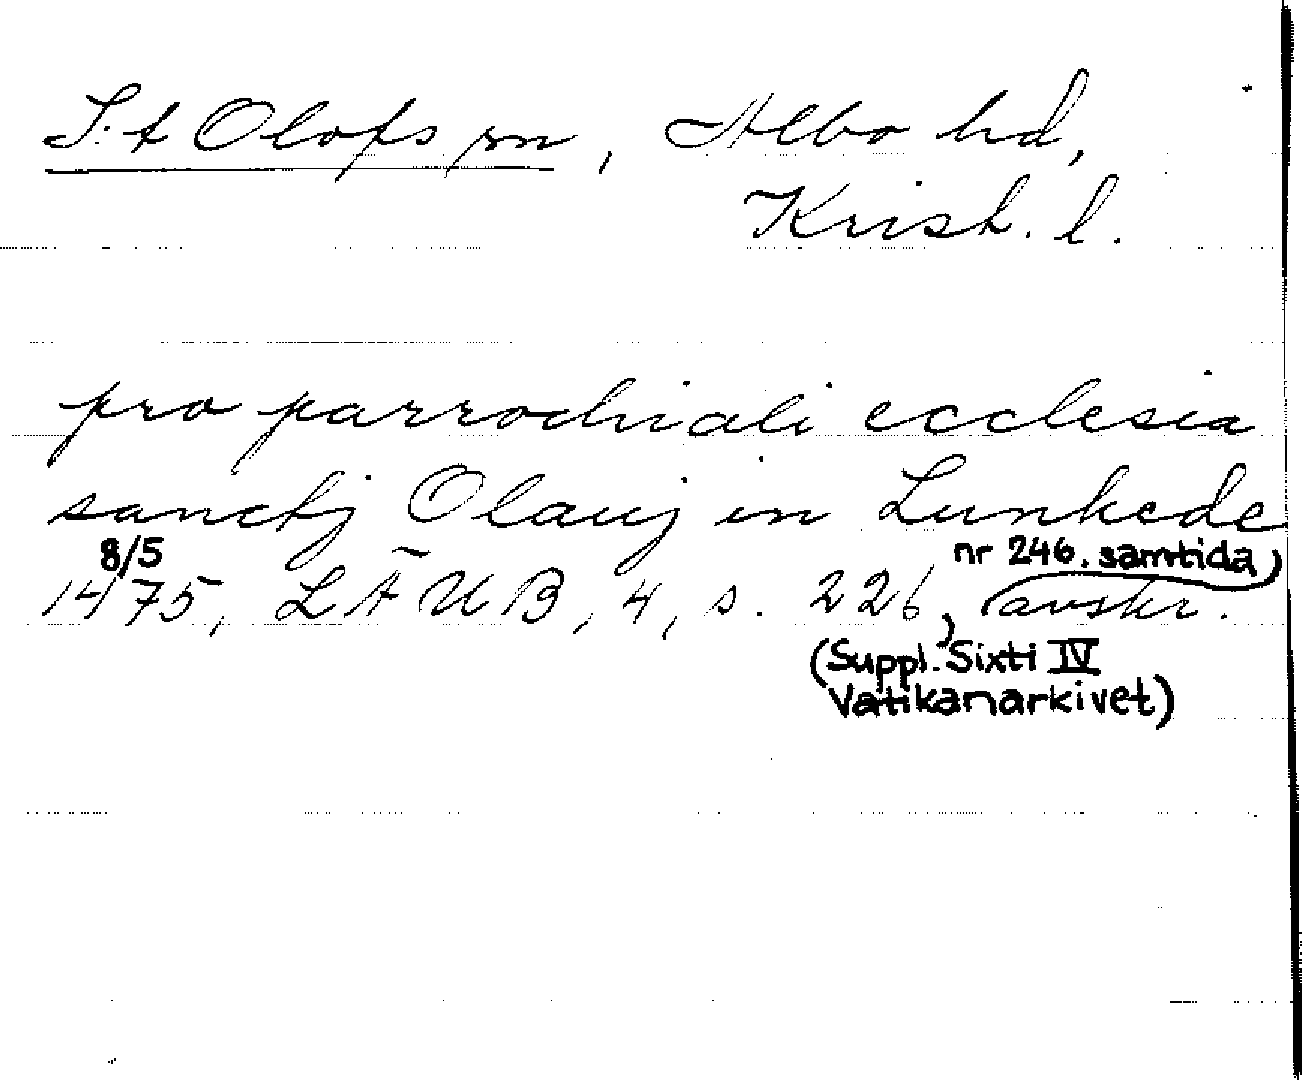 S:t Olofs sn, Albo hd,
Krist. l.
pro parrochiali ecclesia
sanctj Olauj in Lunkede
8/5 nr 246. samtida
1475, LÄUB, 4, s. 226, avskr.
(Suppl. Sixti IV
Vatikanarkivet)